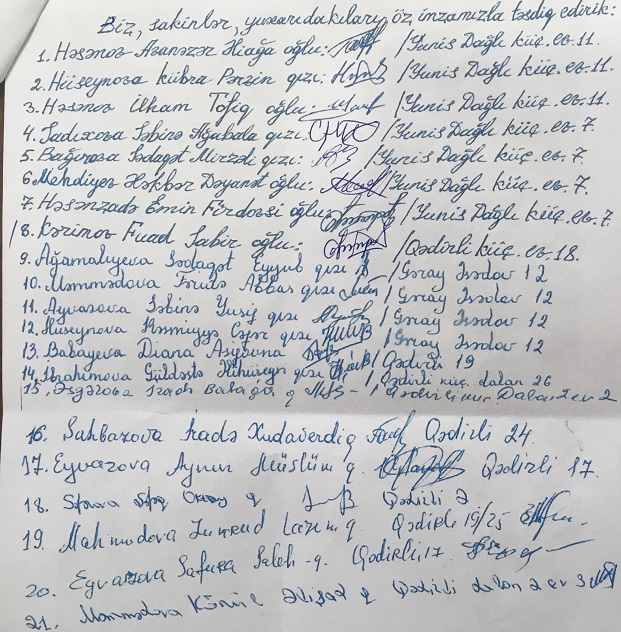 Biz, sakinlər, yuxarıdakıları öz imzamızla təsdiq edirik:
1. Həsənov Əbənəzər Əliağa oğlu: /Yunis Dağlı küç. ev. 11.
2. Hüseynova Kübra Pərzin qızı: /Yunis Dağlı küç. ev. 11.
3. Həsənov İlham Tofiq oğlu: /Yunis Dağlı küç. ev. 11.
4. Sadıxova Səbinə Ağabala qızı: /Yunis Dağlı küç. ev. 7.
5. Bağırova Sədaqət qızı: /Yunis Dağlı küç. ev. 7.
6. Mehdiyev Ələkbər Dəyanət oğlu: /Yunis Dağlı küç. ev. 7.
7. Həsənzadə Emin Firdovsi oğlu: /Yunis Dağlı küç. ev. 7
8. Kərimov Fuad Sabir oğlu: /Qədirli küç. ev. 18.
9. Ağamalıyeva Sədaqət Eyyub qızı / Gəray Əsədov 12
10. Məmmədova Abbas qızı / Gəray Əsədov 12
11. Ayvazova Səbinə Yusif qızı / Gəray Əsədov 12
12. Hüseynova qızı / Gəray Əsədov 12
13. Babayeva Diana / Qədirli 19
14. İbrahimova Güldəstə qızı / Qədirli küç. dalan 26
15. İradə Babaağa q / Qədirli küç Dalan 2 ev 2
16. Şahbazova İradə Xudaverdi q Qədirli 24.
17. Eyvazova Aynur Müslüm q. Qədirli 17.
18. q Qədirli 2
19. Mahmudova Zümrüd q Qədirli 19/25
20. Eyvazova Safura Saleh q. Qədirli 17.
21. Məmmədova Könül q Qədirli dalan 2 ev 3